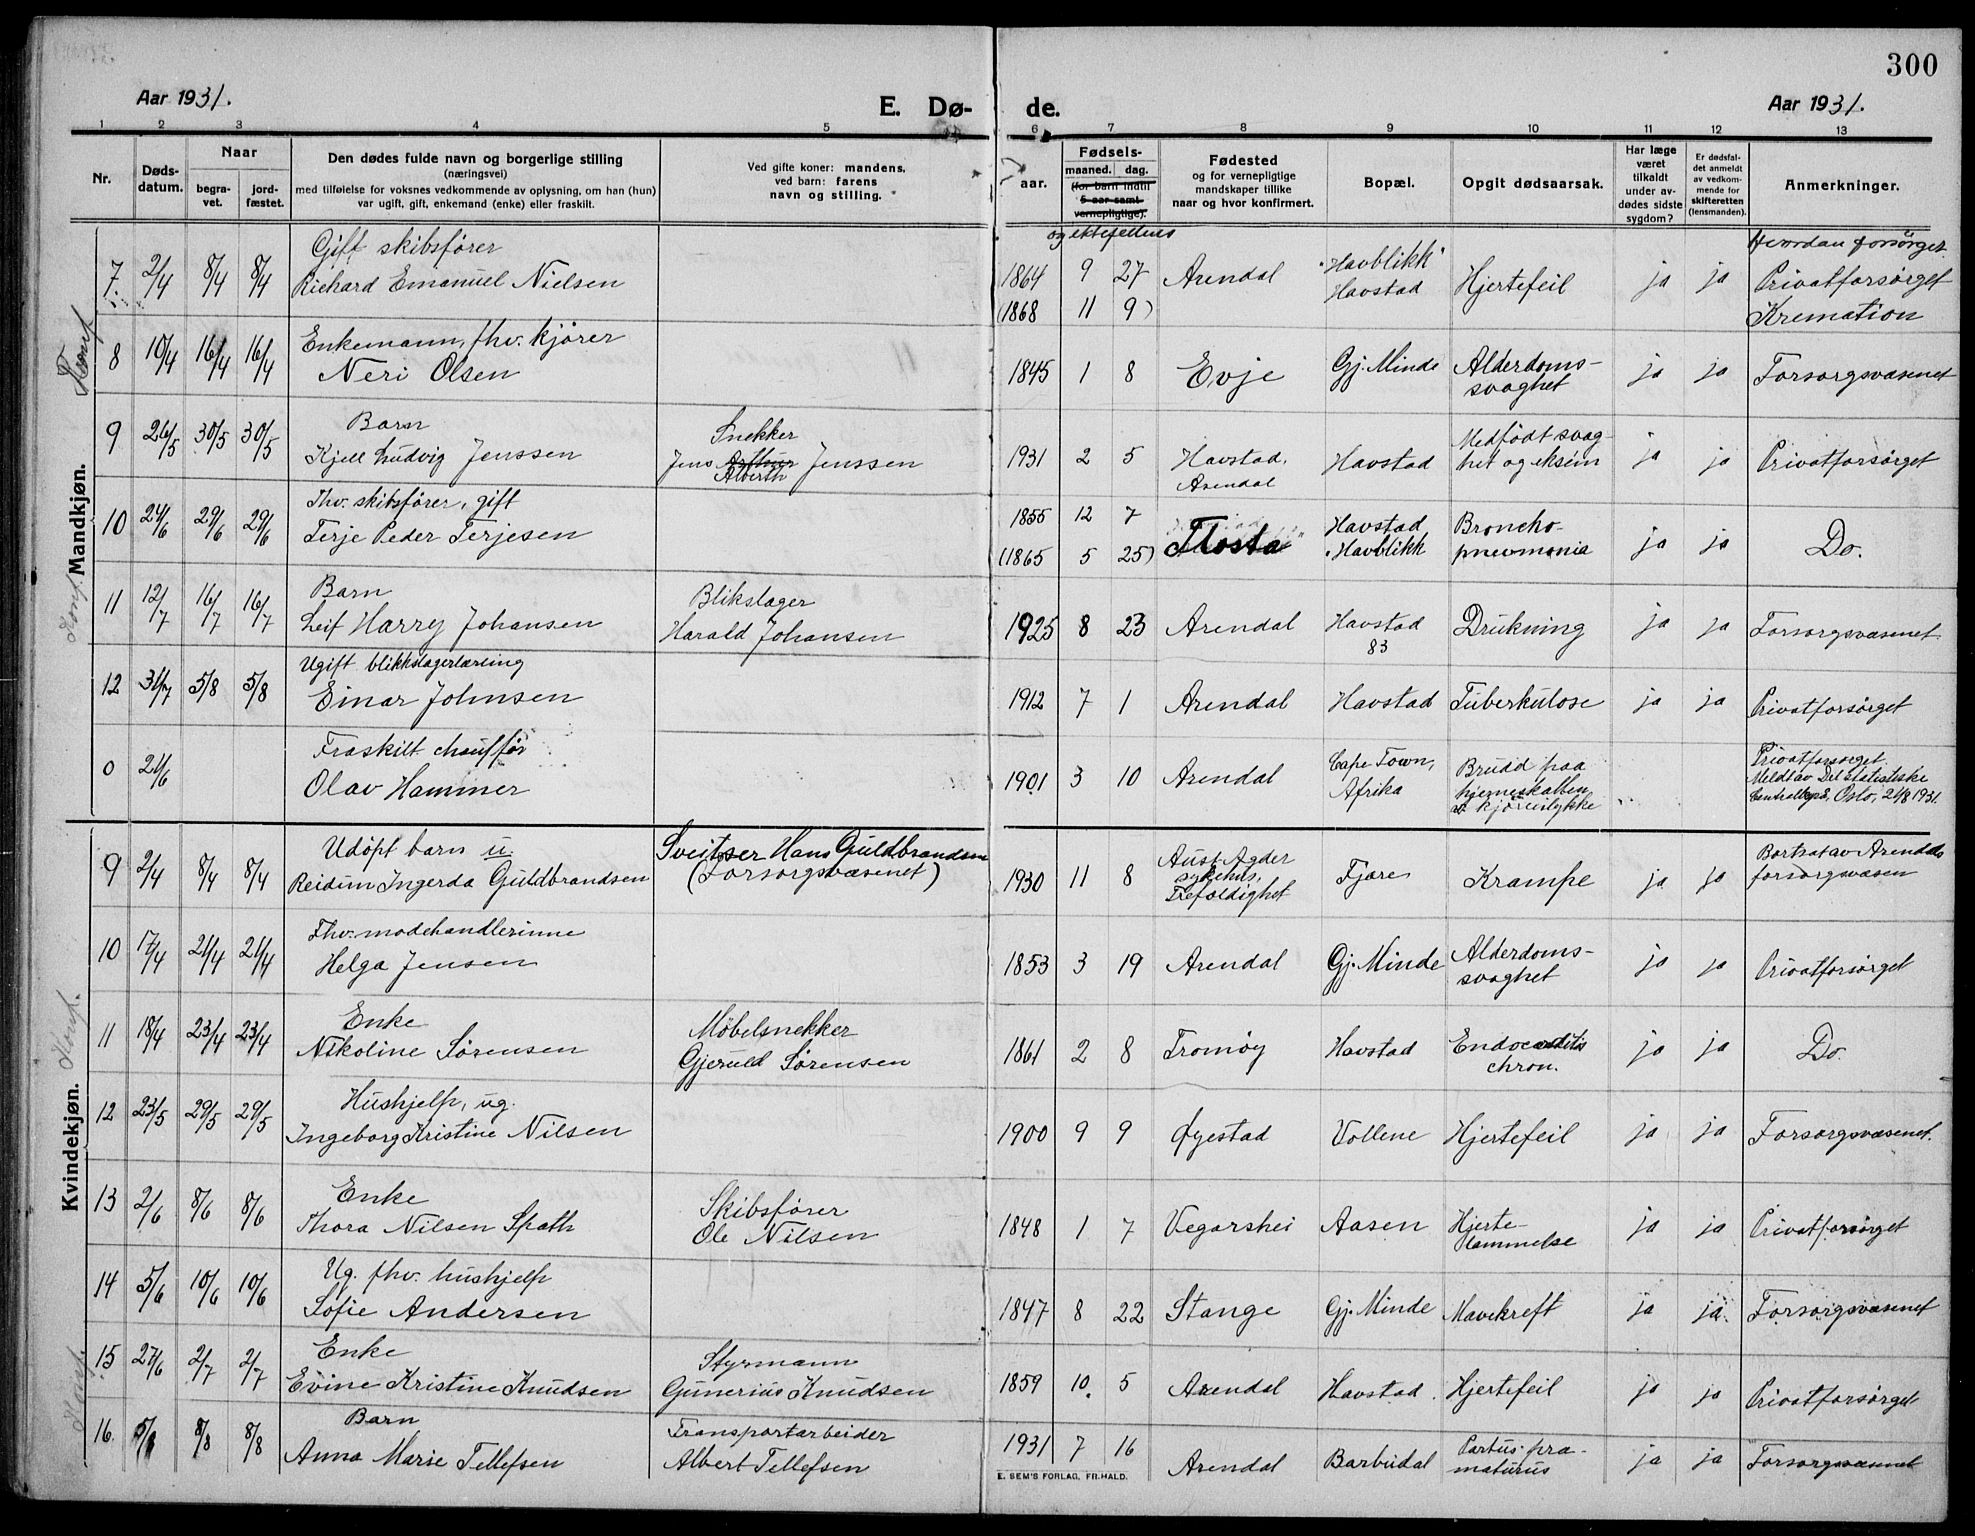 300
Aar 1931.
E. Dø- de.
Aar 1931.
1 2 3 4 5 6 7 8 9 10 11 12 13
Nr.
Døds-
datum.
Naar
begra-
vet.
jord-
fæstet.
Den dødes fulde navn og borgerlige stilling
(næringsvei)
med tilføielse for voksnes vedkommende av oplysning, om han (hun)
var ugift, gift, enkemand (enke) eller fraskilt.
Ved gifte koner: mandens,
ved barn: farens
navn og stilling.
Fødsels-
aar.
maaned.
dag.
(for barn indtil
5 aar samt
vernepligtige).
og ektefellens
Fødested
og for vernepligtige
mandskaper tillike
naar og hvor konfirmert.
Bopæl.
Opgit dødsaarsak.
Har læge
været
tilkaldt
under av-
dødes sidste
sygdom?
Er dødsfal-
det anmeldt
av vedkom-
mende for
skifteretten
(lensmanden).
Anmerkninger.
Hvordan forsørget.
Mandkjøn.
7. 2/4 8/4 8/4 Gift skibsfører
Richard Emanuel Nielsen
1864 9 27 Arendal "Havblikk"
Havstad Hjertefeil ja ja Privatforsørget
(1868 11 9) Kremation
8 10/4 16/4 16/4 Enkemann, fhv. kjører
Neri Olsen
1845 1 8 Evje Gj. Minde Alderdoms-
svaghet ja ja Forsorgsvæsenet
9 26/5 30/5 30/5 Barn
Kjell Ludvig Jenssen
Snekker
Jens Arthur Jenssen
Alberth
1931 2 5 Havstad,
Arendal Havstad Medfødt svag-
het og eksem ja ja Privatforsørget
10 24/6 29/6 29/6 Fhv. skibsfører, gift
Terje Peder Terjesen
1855 12 7 Flosta Havstad
"Havblikk Broncho-
pneumonia ja ja Do.
(1865 5 25)
11 12/7 16/7 16/7 Barn
Leif Harry Johansen
Blikslager
Harald Johansen
1925 8 23 Arendal Havstad
83 Drukning ja ja Forsorgsvæsenet
12 31/7 5/8 5/8 Ugift blikkslagerlærling
Einar Johnsen
1912 7 1 Arendal Havstad Tuberkulose ja ja Privatforsørget
0 21/6 Fraskilt chauffør
Olav Hammer
1901 3 10 Arendal Cape Town,
Afrika Brudd paa
hjerneskallen,
kjøreulykke
Privatforsørget.
Meldt av Det Statistiske
Centralbyrå, Oslo, 21/8 1931.
Kvindekjøn.
9 2/4 8/4 8/4 Udøpt barn u.
Reidun Ingerda Guldbrandsen
Sveitser Hans Guldbrandsen
(Forsorgsvæsenet)
1930 11 8 Aust Agder
sykehus,
Trefoldighet Fjære Krampe ja ja Bortsat av Arendals
forsorgsvæsen
10 17/4 21/4 21/4 Fhv. modehandlerinne
Helga Jensen
1853 3 19 Arendal Gj. Minde Alderdoms-
svaghet ja ja Privatforsørget
11 18/4 23/4 23/4 Enke
Nikoline Sørensen
Møbelsnekker
Gjeruld Sørensen
1861 2 8 Tromøy Havstad Endocarditis
chron. ja ja Do.
12 23/5 29/5 29/5 Hushjelp, ug.
Ingeborg Kristine Nilsen
1900 9 9 Øyestad Vollene Hjertefeil ja ja Forsorgsvæsenet.
13 2/6 8/6 8/6 Enke
Thora Nilsen Spath
Skibsfører
Ole Nilsen
1848 1 7 Vegarshei Aasen Hjerte-
lammelse ja ja Privatforsørget
14 5/6 10/6 10/6 Ug. fhv. hushjelp
Sofie Andersen
1847 8 22 Stange Gj. Minde Mavekreft ja ja. Forsorgsvæsenet
15 27/6 2/7 2/7 Enke
Evine Kristine Knudsen
Styrmann
Gunerius Knudsen
1859 10 5 Arendal Havstad. Hjertefeil ja ja Privatforsørget
16. 8/8 8/8 Barn
Anna Marie Tellefsen
Transportarbeider
Albert Tellefsen
1931 7 16 Arendal Barbudal Partus præ-
maturus ja ja Forsorgsvæsenet
E. SEM'S FORLAG, FR.HALD.